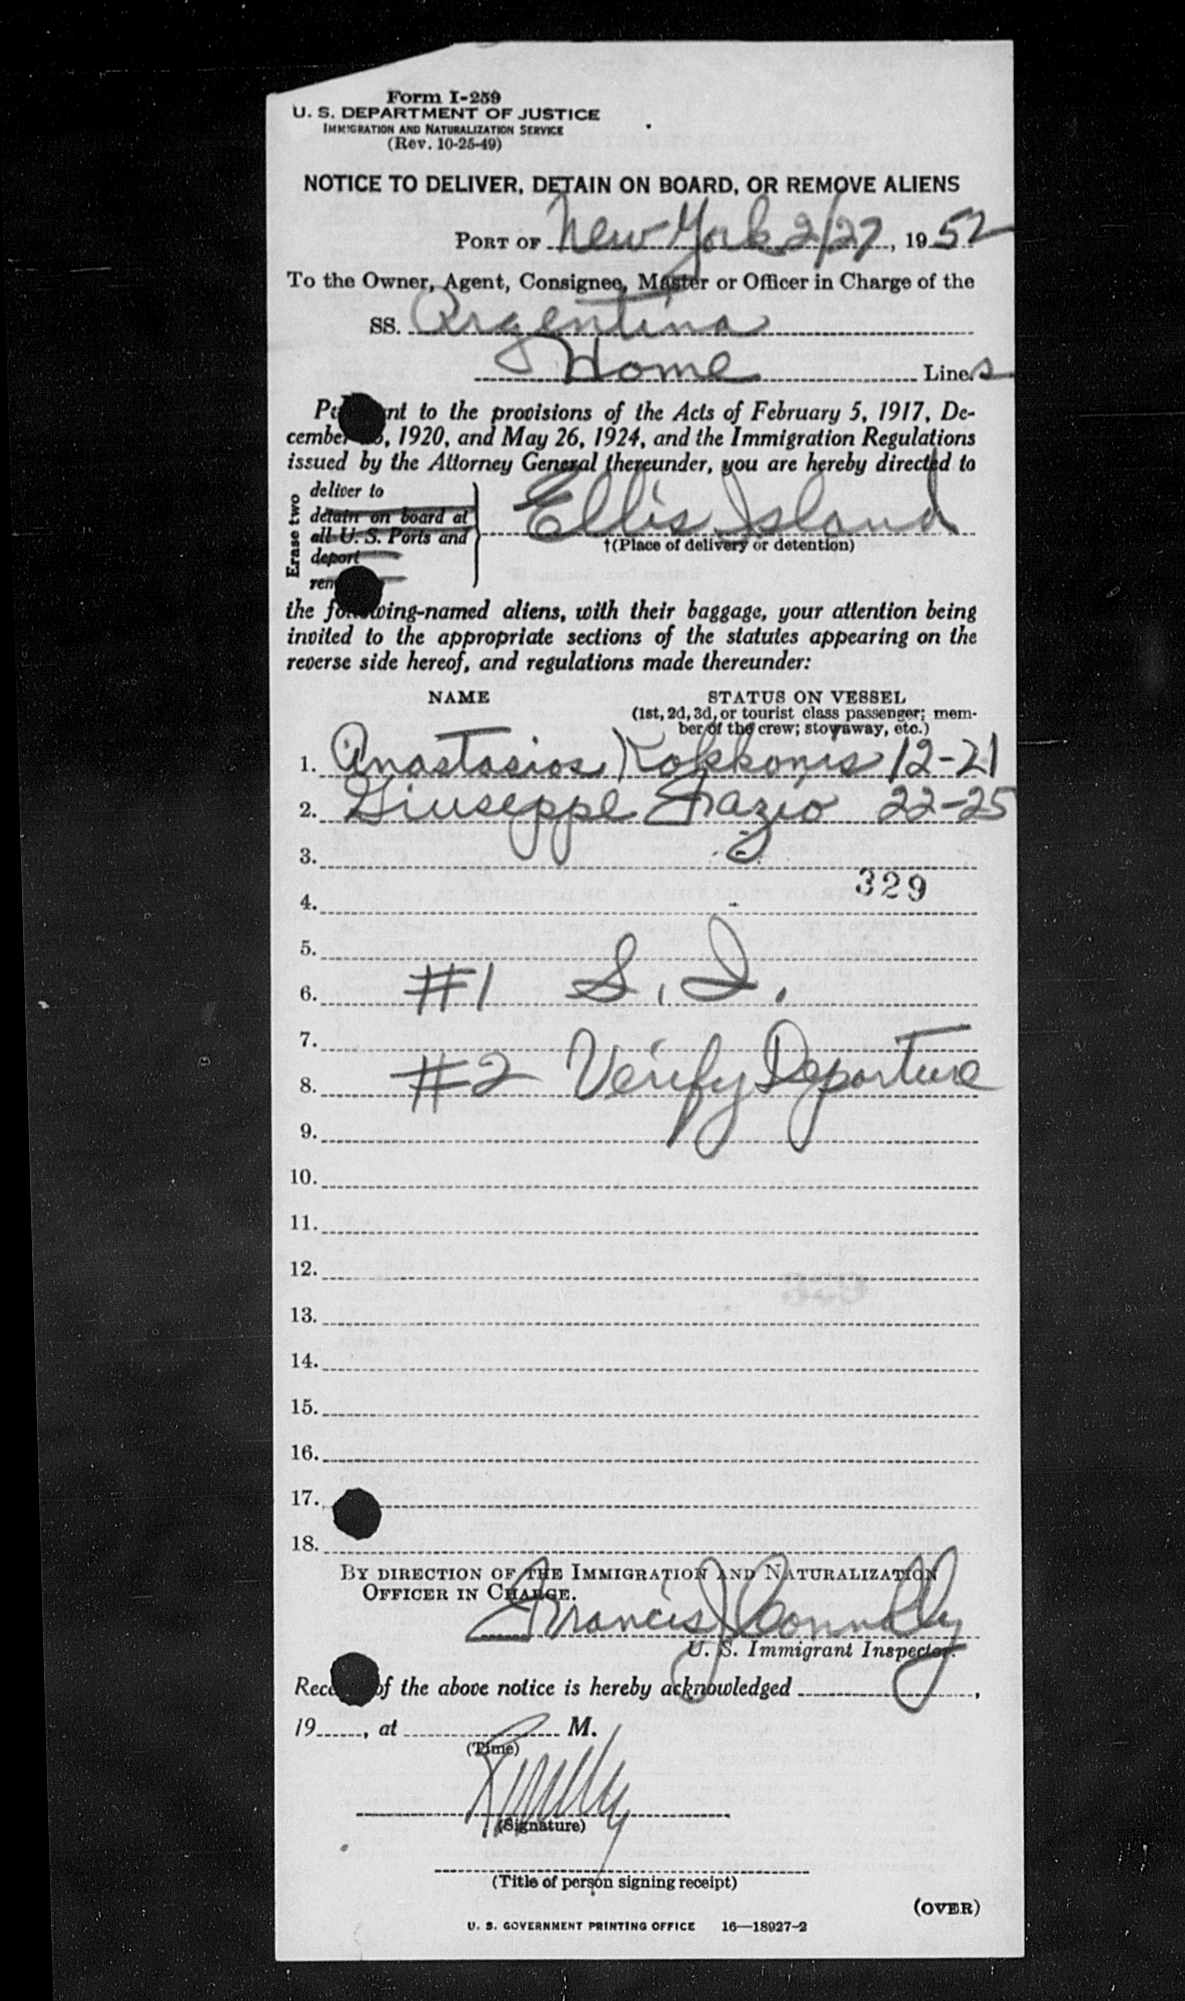 Form I-259
U. S. DEPARTMENT OF JUSTICE
IMMIGRATION AND NATURALIZATION SERVICE
(Rev. 10-25-49)
NOTICE TO DELIVER, DETAIN ON BOARD, OR REMOVE ALIENS
PORT OF New York 2/27, 1952
To the Owner, Agent, Consignee, Master or Officer in Charge of the
SS. Argentina
Home Lines
nt to the provisions of the Acts of February 5, 1917, De-
cember , 1920, and May 26, 1924, and the Immigration Regulations
issued by the Attorney General thereunder, you are hereby directed to
Erase two
deliver to
detain on board at
all U. S. Ports and
deport
Ellis Island
†(Place of delivery or detention)
the following-named aliens, with their baggage, your attention being
invited to the appropriate sections of the statutes appearing on the
reverse side hereof, and regulations made thereunder:
NAME STATUS ON VESSEL
(1st, 2d, 3d, or tourist class passenger; mem-
ber of the crew; stowaway, etc.)
1. Anastasios Kokkonis 12-21
2. Giuseppe Frazio 22-25
3.
329
4.
5.
6. #1 S. I.
7.
8. #2 Verify Departure
9.
10.
11.
12.
13.
14.
15.
16.
17.
18.
BY DIRECTION OF THE IMMIGRATION AND NATURALIZATION
OFFICER IN CHARGE.
Francis J Connolly
U. S. Immigrant Inspector.
of the above notice is hereby acknowledged ,
19 , at M.
(Time)
(Signature)
(Title of person signing receipt)
(OVER)
U. S. GOVERNMENT PRINTING OFFICE 16—18927-2